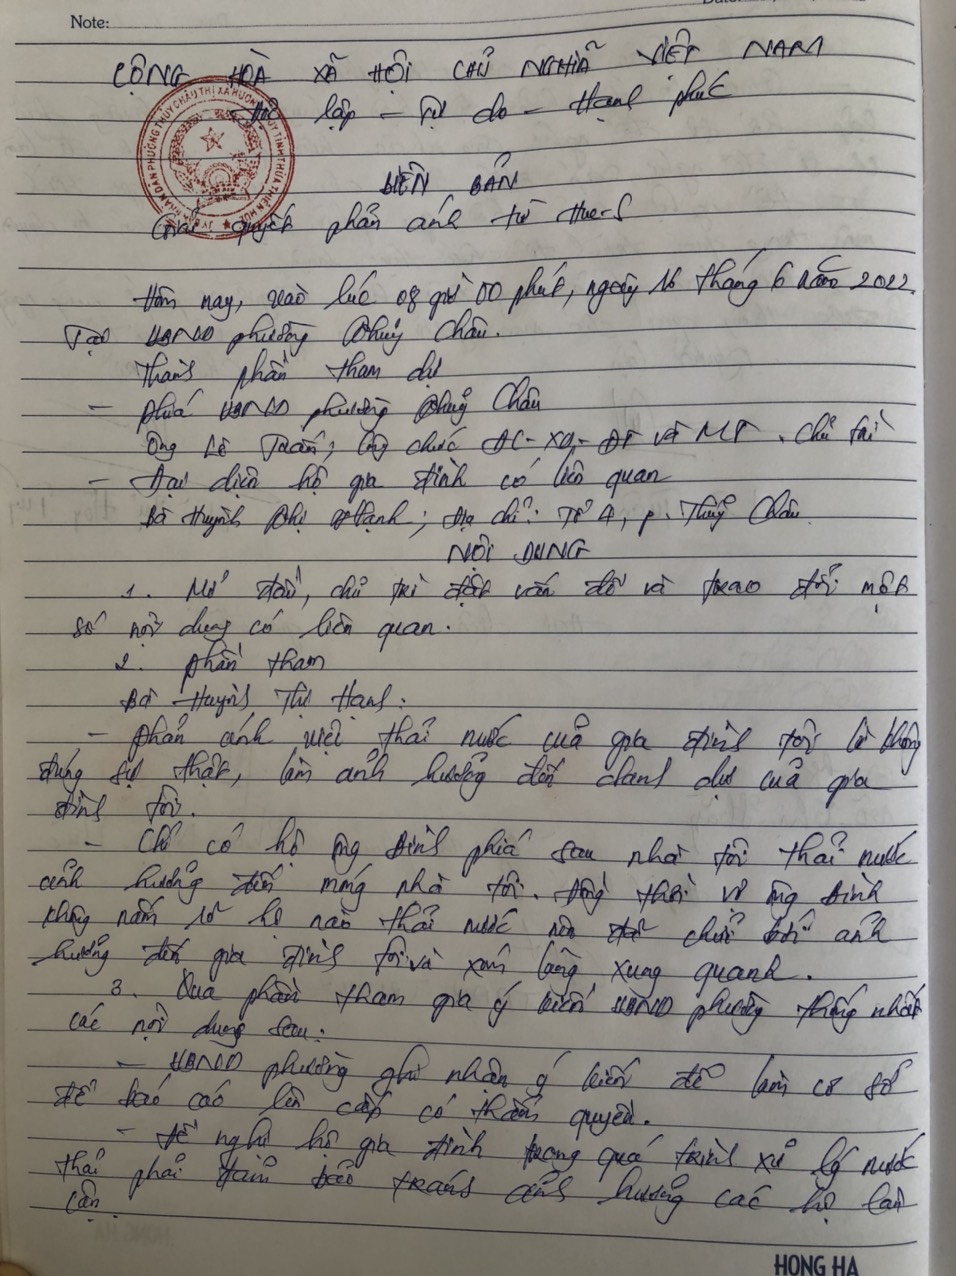 Note:
CỘNG HOÀ XÃ HỘI CHỦ NGHĨA VIỆT NAM
Độc lập - Tự do - Hạnh phúc
BIÊN BẢN
Giải quyết phản ánh từ Hue-S
Hôm nay, vào lúc 08 giờ 00 phút, ngày 16 tháng 6 năm 2022.
Tại UBND phường Thuỷ Châu.
Thành phần tham dự
- Phía UBND phường Thuỷ Châu
Ông Lê Tuấn; Công chức ĐC-XD-ĐT và MT. Chủ trì
- Đại diện hộ gia đình có liên quan
Bà Huỳnh Thị Hạnh; Địa chỉ: Tổ 4, p. Thuỷ Châu
NỘI DUNG
1. Mở đầu, chủ trì đặt vấn đề và trao đổi một
số nội dung có liên quan.
2. Phần tham
Bà Huỳnh Thị Hạnh:
- Phản ánh việc thải nước của gia đình tôi là không
đúng sự thật, làm ảnh hưởng đến danh dự của gia
đình tôi.
- Chỉ có hộ ông Đình phía sau nhà tôi thải nước
ảnh hưởng đến móng nhà tôi. Đồng thời vợ ông Đình
không nắm rõ hộ nào thải nước mà chửi bới ảnh
hưởng đến gia đình tôi và xóm làng xung quanh.
3. Qua phần tham gia ý kiến UBND phường thống nhất
các nội dung sau:
- UBND phường ghi nhận ý kiến để làm cơ sở
để báo cáo lên cấp có thẩm quyền.
- Đề nghị hộ gia đình trong quá trình xử lý nước
thải phải đảm bảo tránh ảnh hưởng các hộ lân
cận.
HONG HA